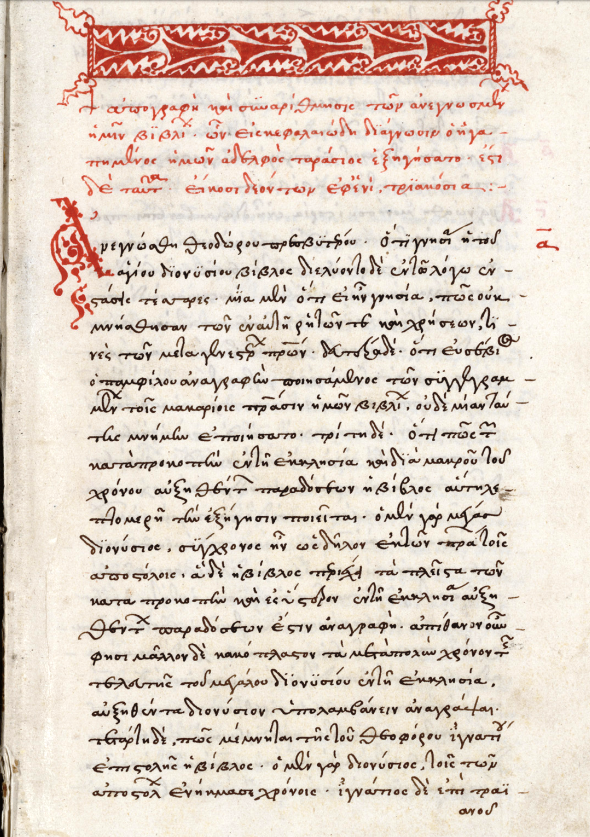 + ἀπογραφὴ καὶ συναρίθμησις τῶν ἀνεγνωσμένων
ἡμῖν βιβλίων· ὧν εἰς κεφαλαιώδη διάγνωσιν ὁ ἠγα-
πημένος ἡμῶν ἀδελφὸς ταράσιος ἐξηγήσατο· ἔστι
δὲ ταῦτα εἴκοσι δεόντων ἐφ' ἑνὶ, τριακόσια:-
Ἀνεγνώσθη θεοδώρου πρεσβυτέρου. ὅτι γνησία ἡ τοῦ
ᾱ
ἁγίου διονυσίου βίβλος· διελύοντο δὲ ἐν τῷ λόγῳ ἐν-
στάσεις τέσσαρες· μία μὲν ὅτι εἰ ἦν γνησία, πῶς οὐκ
ἐμνήσθησαν τῶν ἐν αὐτῇ ῥητῶν τε καὶ χρήσεων, τι-
νὲς τῶν μεταγενεστέρων πατέρων· δευτέρα δὲ· ὅτι εὐσέβιος
ὁ παμφίλου ἀναγραφὴν ποιησάμενος τῶν συγγεγραμ-
μένων τοῖς μακαρίοις πατράσιν ἡμῶν βιβλίων, οὐδεμίαν ταύ-
της μνήμην ἐποιήσατο· τρίτη δὲ· ὅτι πῶς τῶν
κατὰ προκοπὴν ἐν τῇ ἐκκλησία καὶ διὰ μακροῦ τοῦ
χρόνου αὐξηθεισῶν παραδόσεων ἡ βίβλος αὕτη λε-
πτομερῆ τὴν ἐξήγησιν ποιεῖται· ὁ μὲν γὰρ μέγας
διονύσιος, σύγχρονος ἦν ὡς δῆλον ἐκ τῶν πράξεων τοῖς
ἀποστόλοις· ἃ δὲ ἡ βίβλος περιέχει τὰ πλεῖστα τῶν
κατὰ προκοπὴν καὶ ἐς ὕστερον ἐν τῇ ἐκκλησία αὐξη-
θεισῶν παραδόσεων ἐστὶν ἀναγραφή· ἀπίθανον οὖν
φησι μᾶλλον δὲ κακόπλαστον τὰ μετὰ πολὺν χρόνον τῆς
τελευτῆς τοῦ μεγάλου διονυσίου ἐν τῇ ἐκκλησία,
αὐξηθέντα διονύσιον ὑπολαμβάνειν ἀναγράψαι·
τετάρτη δὲ, πῶς μέμνηται τῆς τοῦ θεοφόρου ἰγνατίου
ἐπιστολῆς ἡ βίβλος· ὁ μὲν γὰρ διονύσιος, τοῖς τῶν
ἀποστόλων ἐνήκμασε χρόνοις· ἰγνάτιος δὲ ἐπὶ τραϊ-
ανοῦ